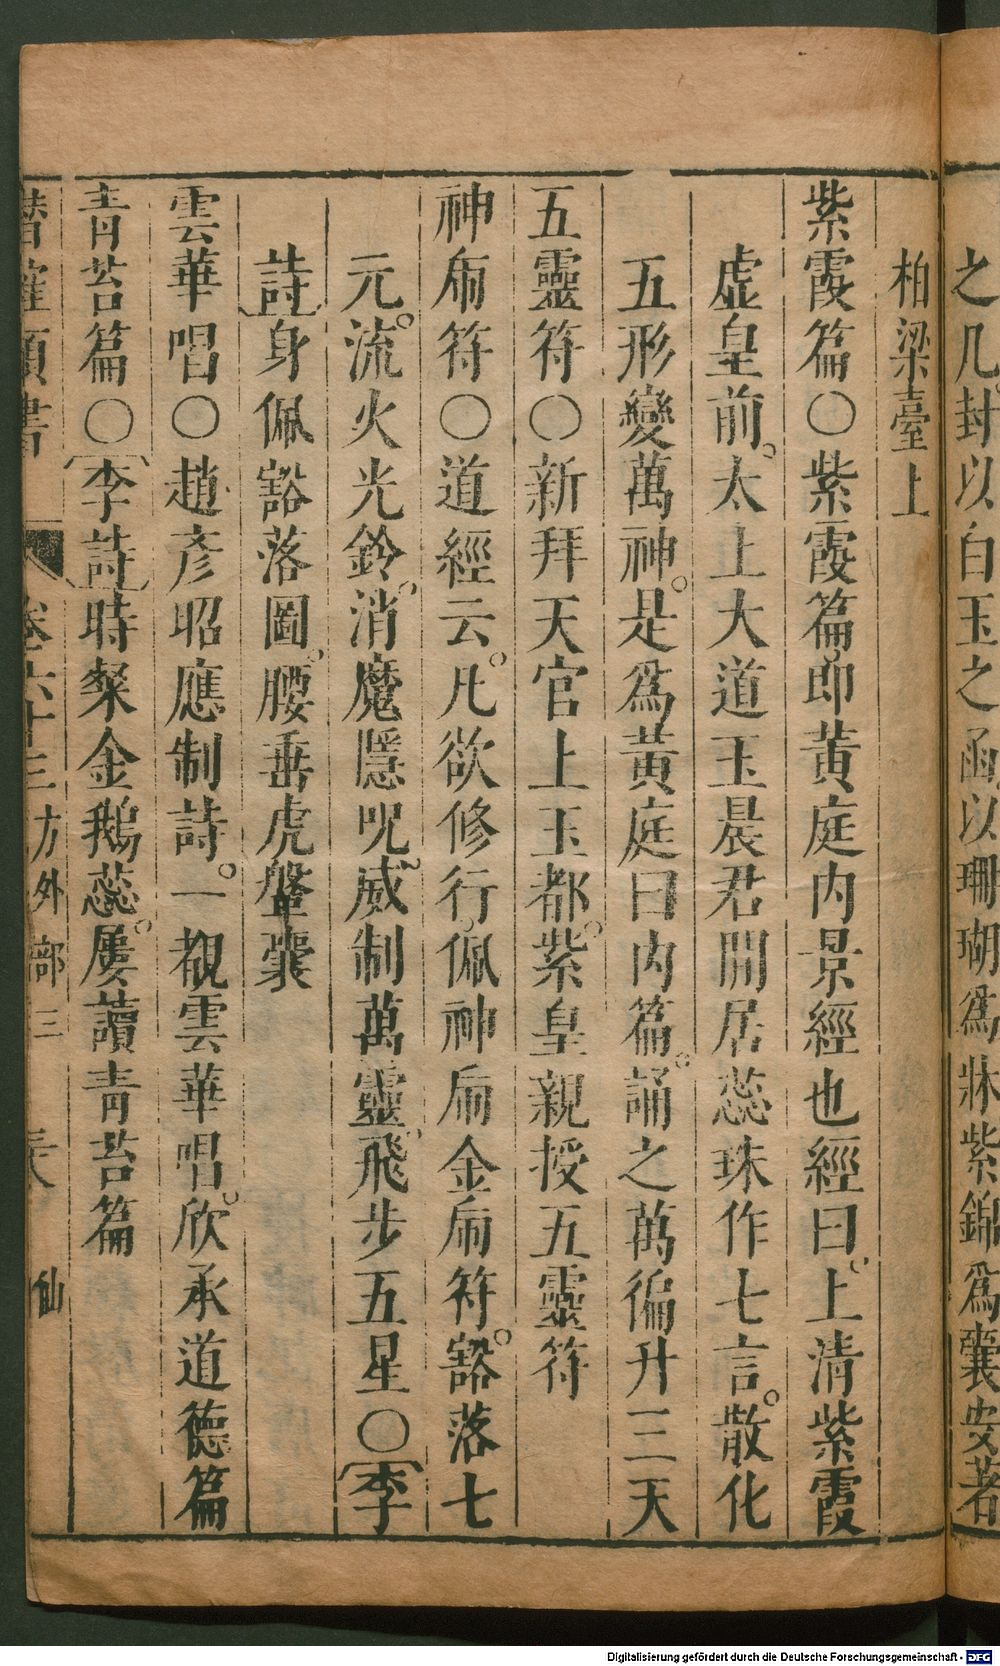 之几封以白玉之函以珊瑚爲牀紫錦爲囊安著
柏梁臺上
紫霞篇○紫霞篇即黃庭内景經也經曰上清紫霞
虛皇前太上大道玉晨君閒居蕊珠作七言散化
五形變萬神是爲黃庭曰内篇誦之萬徧升三天
五靈符○新拜天官上玉都紫皇親授五靈符
神㡾符○道經云凡欲修行佩神㡾金㡾符豁落七
元流火光鈴消魔隱呪威制萬靈飛步五星○李
詩身佩豁落圖腰垂虎鞶囊
雲華唱○趙彥昭應制詩一觀雲華唱欣承道德篇
青苔篇○李詩時粲金鵝蕊屢讀青苔篇
潛確類書 卷六十三方外部三 三大 仙
Digitalisierung gefördert durch die Deutsche Forschungsgemeinschaft - DFG